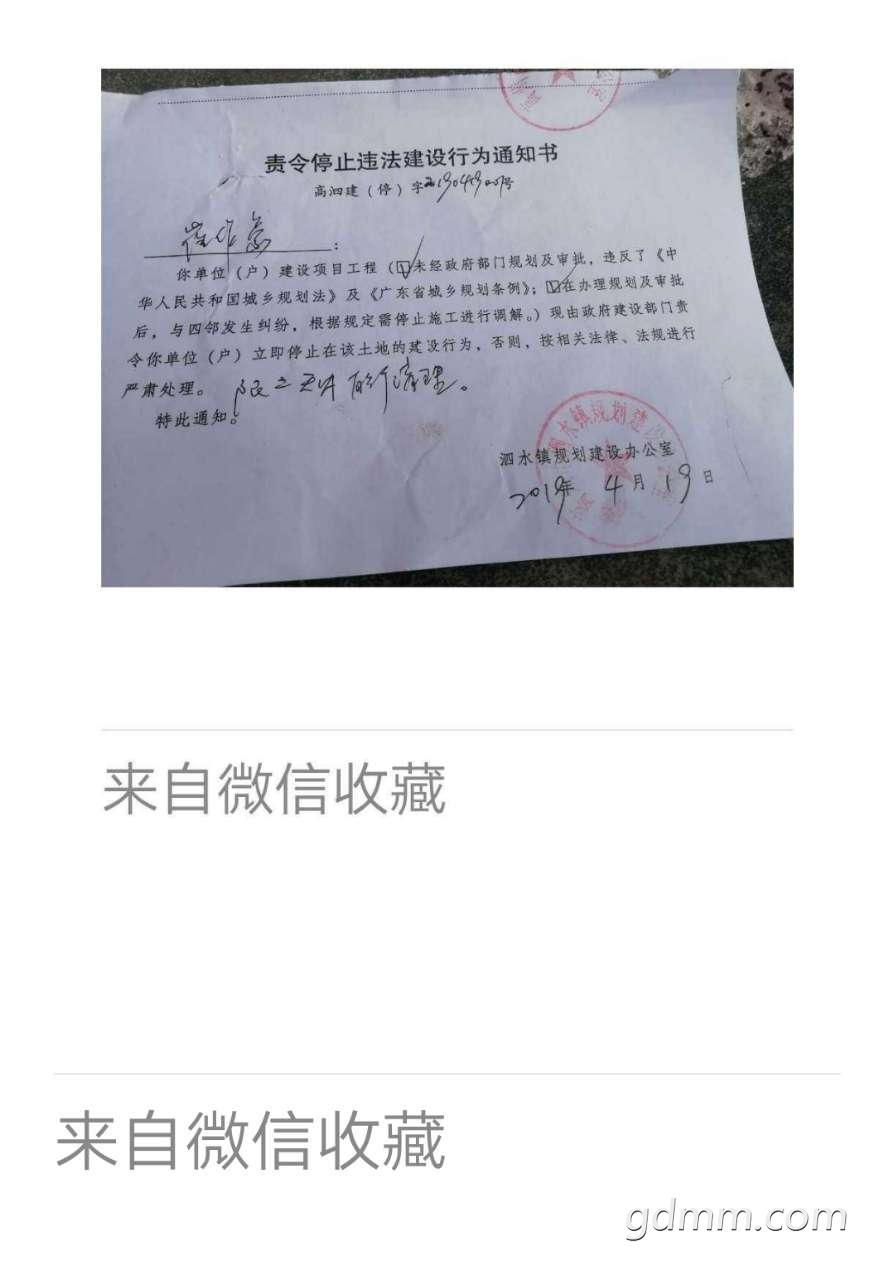 责令停止违法建设行为通知书
高泗建（停）字20190419001号
：
你单位（户）建设项目工程（☑未经政府部门规划及审批，违反了《中
华人民共和国城乡规划法》及《广东省城乡规划条例》；☑在办理规划及审批
后，与四邻发生纠纷，根据规定需停止施工进行调解。）现由政府建设部门责
令你单位（户）立即停止在该土地的建设行为，否则，按相关法律、法规进行
严肃处理。限之天内自行清理。
特此通知。
泗水镇规划建设办公室
2019年4月19日
来自微信收藏
来自微信收藏
gdmm.com